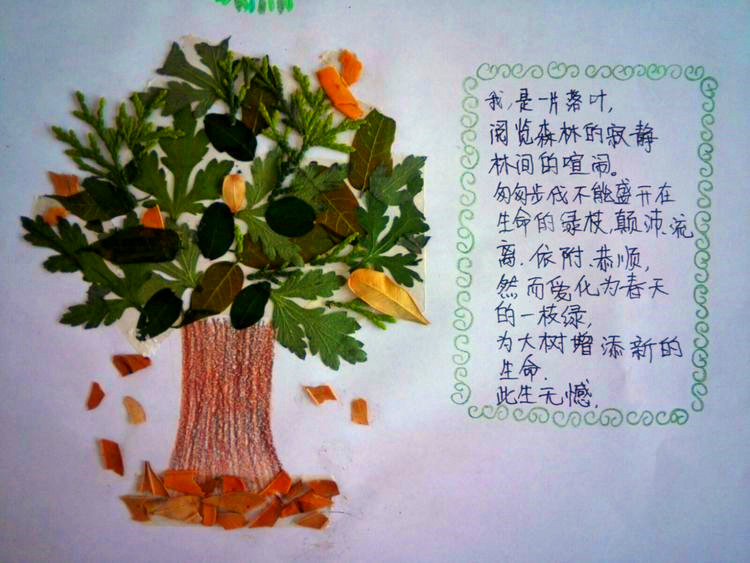 我，是一片落叶，
阅览森林的寂静
林间的喧闹。
匆匆步伐不能盛开在
生命的绿枝，颠沛.流
离.依附.恭顺，
然而爱化为春天
的一枝绿，
为大树增添新的
生命.
此生无憾.